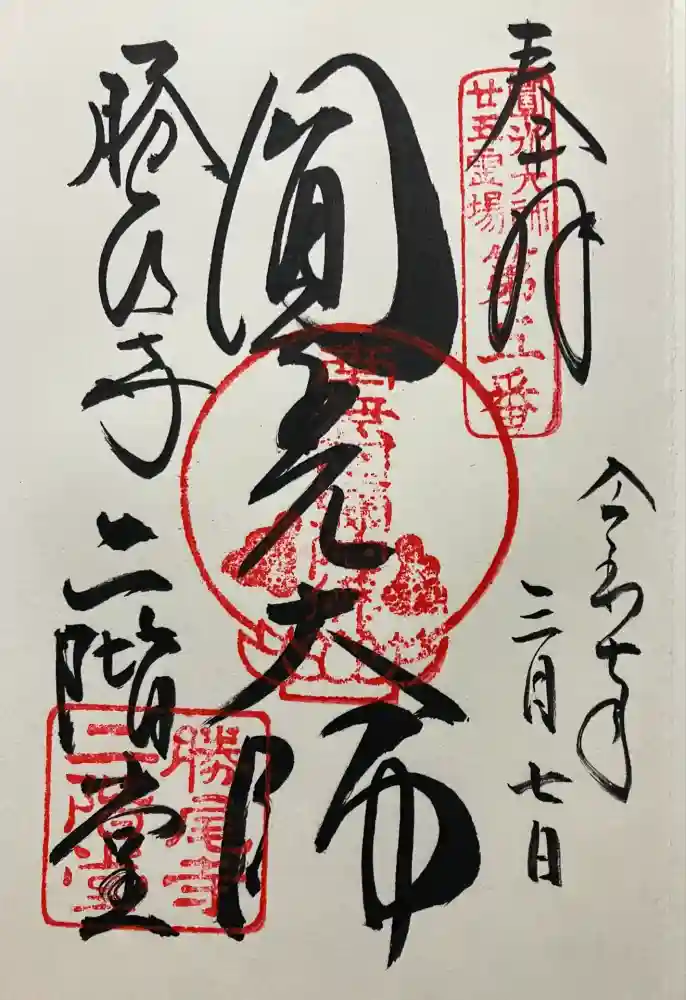 奉拝
圓光大師
廿五霊場
第五番
令和七年
三月七日
圓光大師
勝尾寺
二階堂
勝尾寺
二階堂